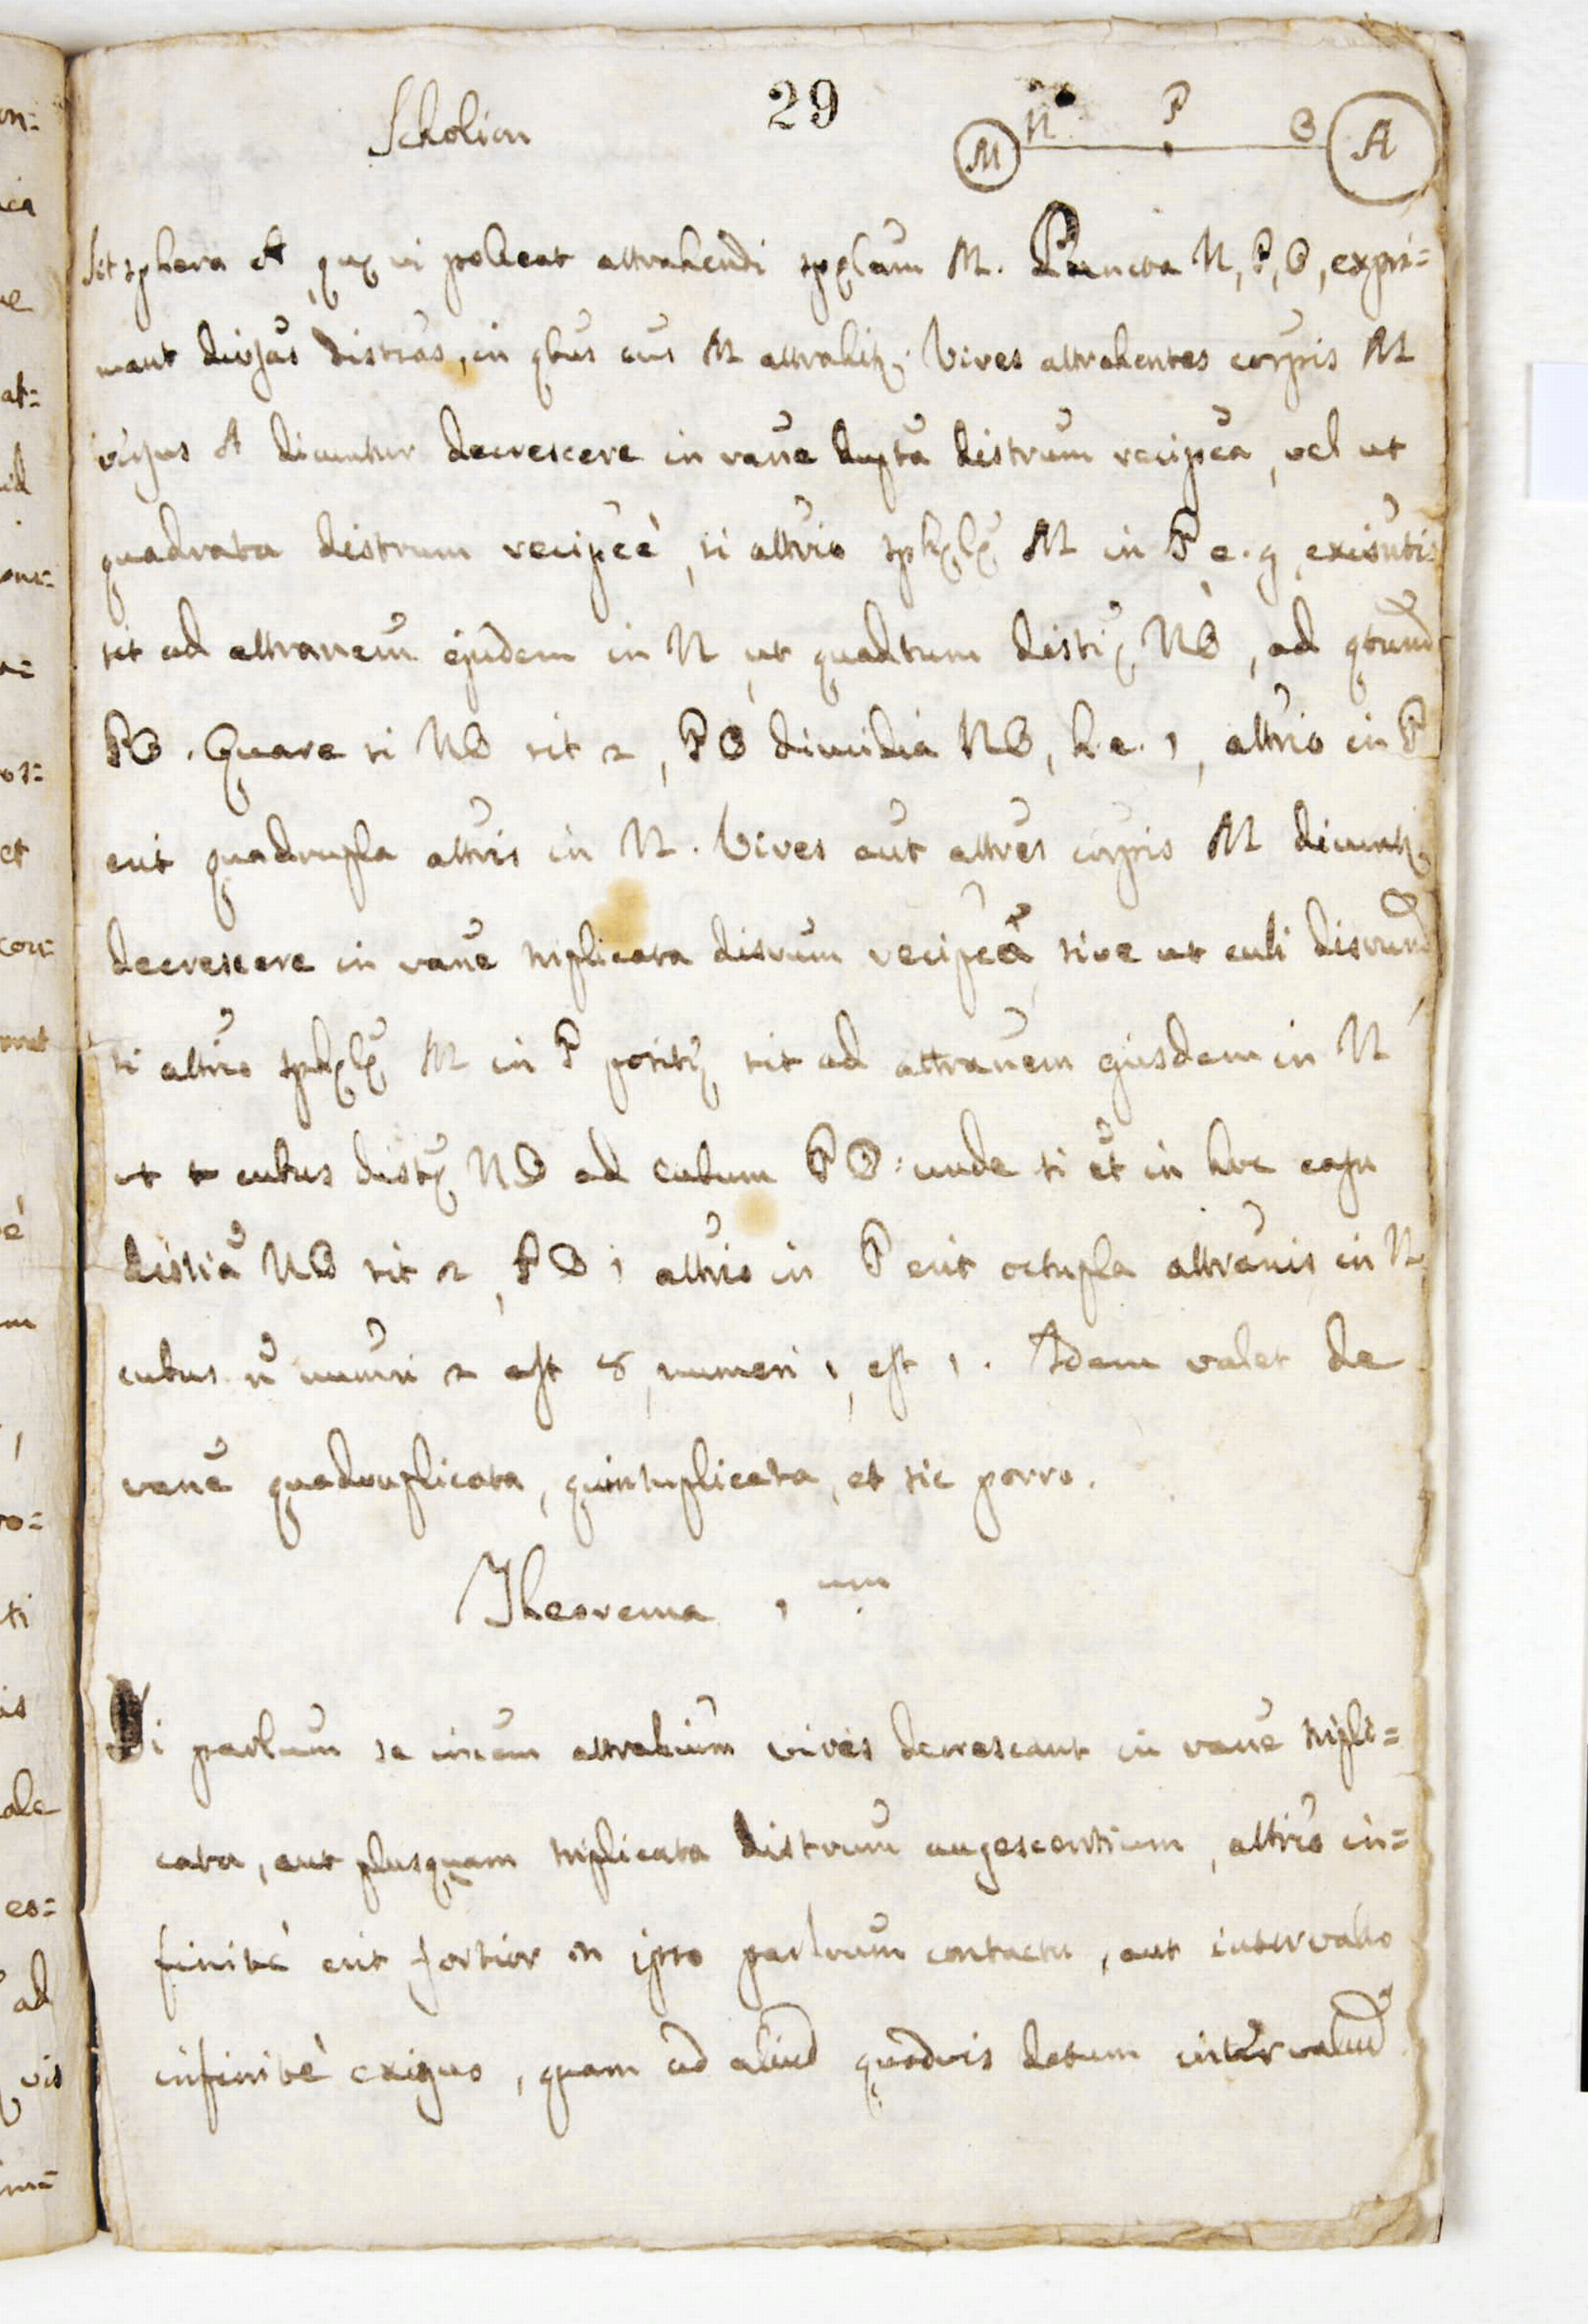 Scholion 29
M N P B A
Sit sphera A quæ vi polleat attrahendi sphlam M. Puncta N, P, B, expri=
mant divsas distias, in qbus cus M attrahitr. Vires attrahentes corpis M
versus A dicuntur decrescere in rane dupta distrum recipca, vel ut
quadrata distrum recipce, si attrio sphlæ M in P e.g. existntis
sit ad attranem ejusdem in N ut quadtum distiæ NB, ad qtum
PB. Quare si NB sit 2, PB dimidia NB, h.e. 1, attrio in P
erit quadrupla attris in N. Vires aut attres corpis M dicuntr
decrescere in rane triplicata distrum recipca sive ut cubi distrum
si attrio sphlæ M in P positæ sit ad attranem ejusdem in N
ut cubus distæ NB ad cubum PB: unde si et in hoc casu
distia NB sit 2, PB 1 attrio in P erit octupla attranis in N
cubus n numri 2 est 8, numeri 1, est 1. Idem valet de
rane quadruplicata, quintuplicata, et sic porro.
Theorema 1um
Si parlum se invcem attrahium vires decrescant in rane tripli=
cata, aut plusquam triplicata distrum augescentium, attrio in=
finitè erit fortior in ipso parlrum contactu, aut intervallo
infinitè exiguo, quam ad aliud quodvis datum intervallum